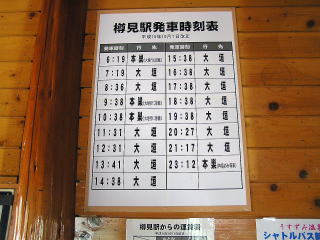 樽見駅発車時刻表
発車時刻 行先 発車時刻 行先
6:19 本巣 15:38 大垣
7:19 大垣 16:38 大垣
8:36 大垣 17:38 大垣
9:38 本巣 18:38 大垣
10:38 本巣 19:38 大垣
11:31 大垣 20:27 大垣
12:31 大垣 21:17 大垣
13:41 大垣 23:12 本巣
14:38 大垣
樽見駅からの運賃
うすずみ温泉
シャトルバス